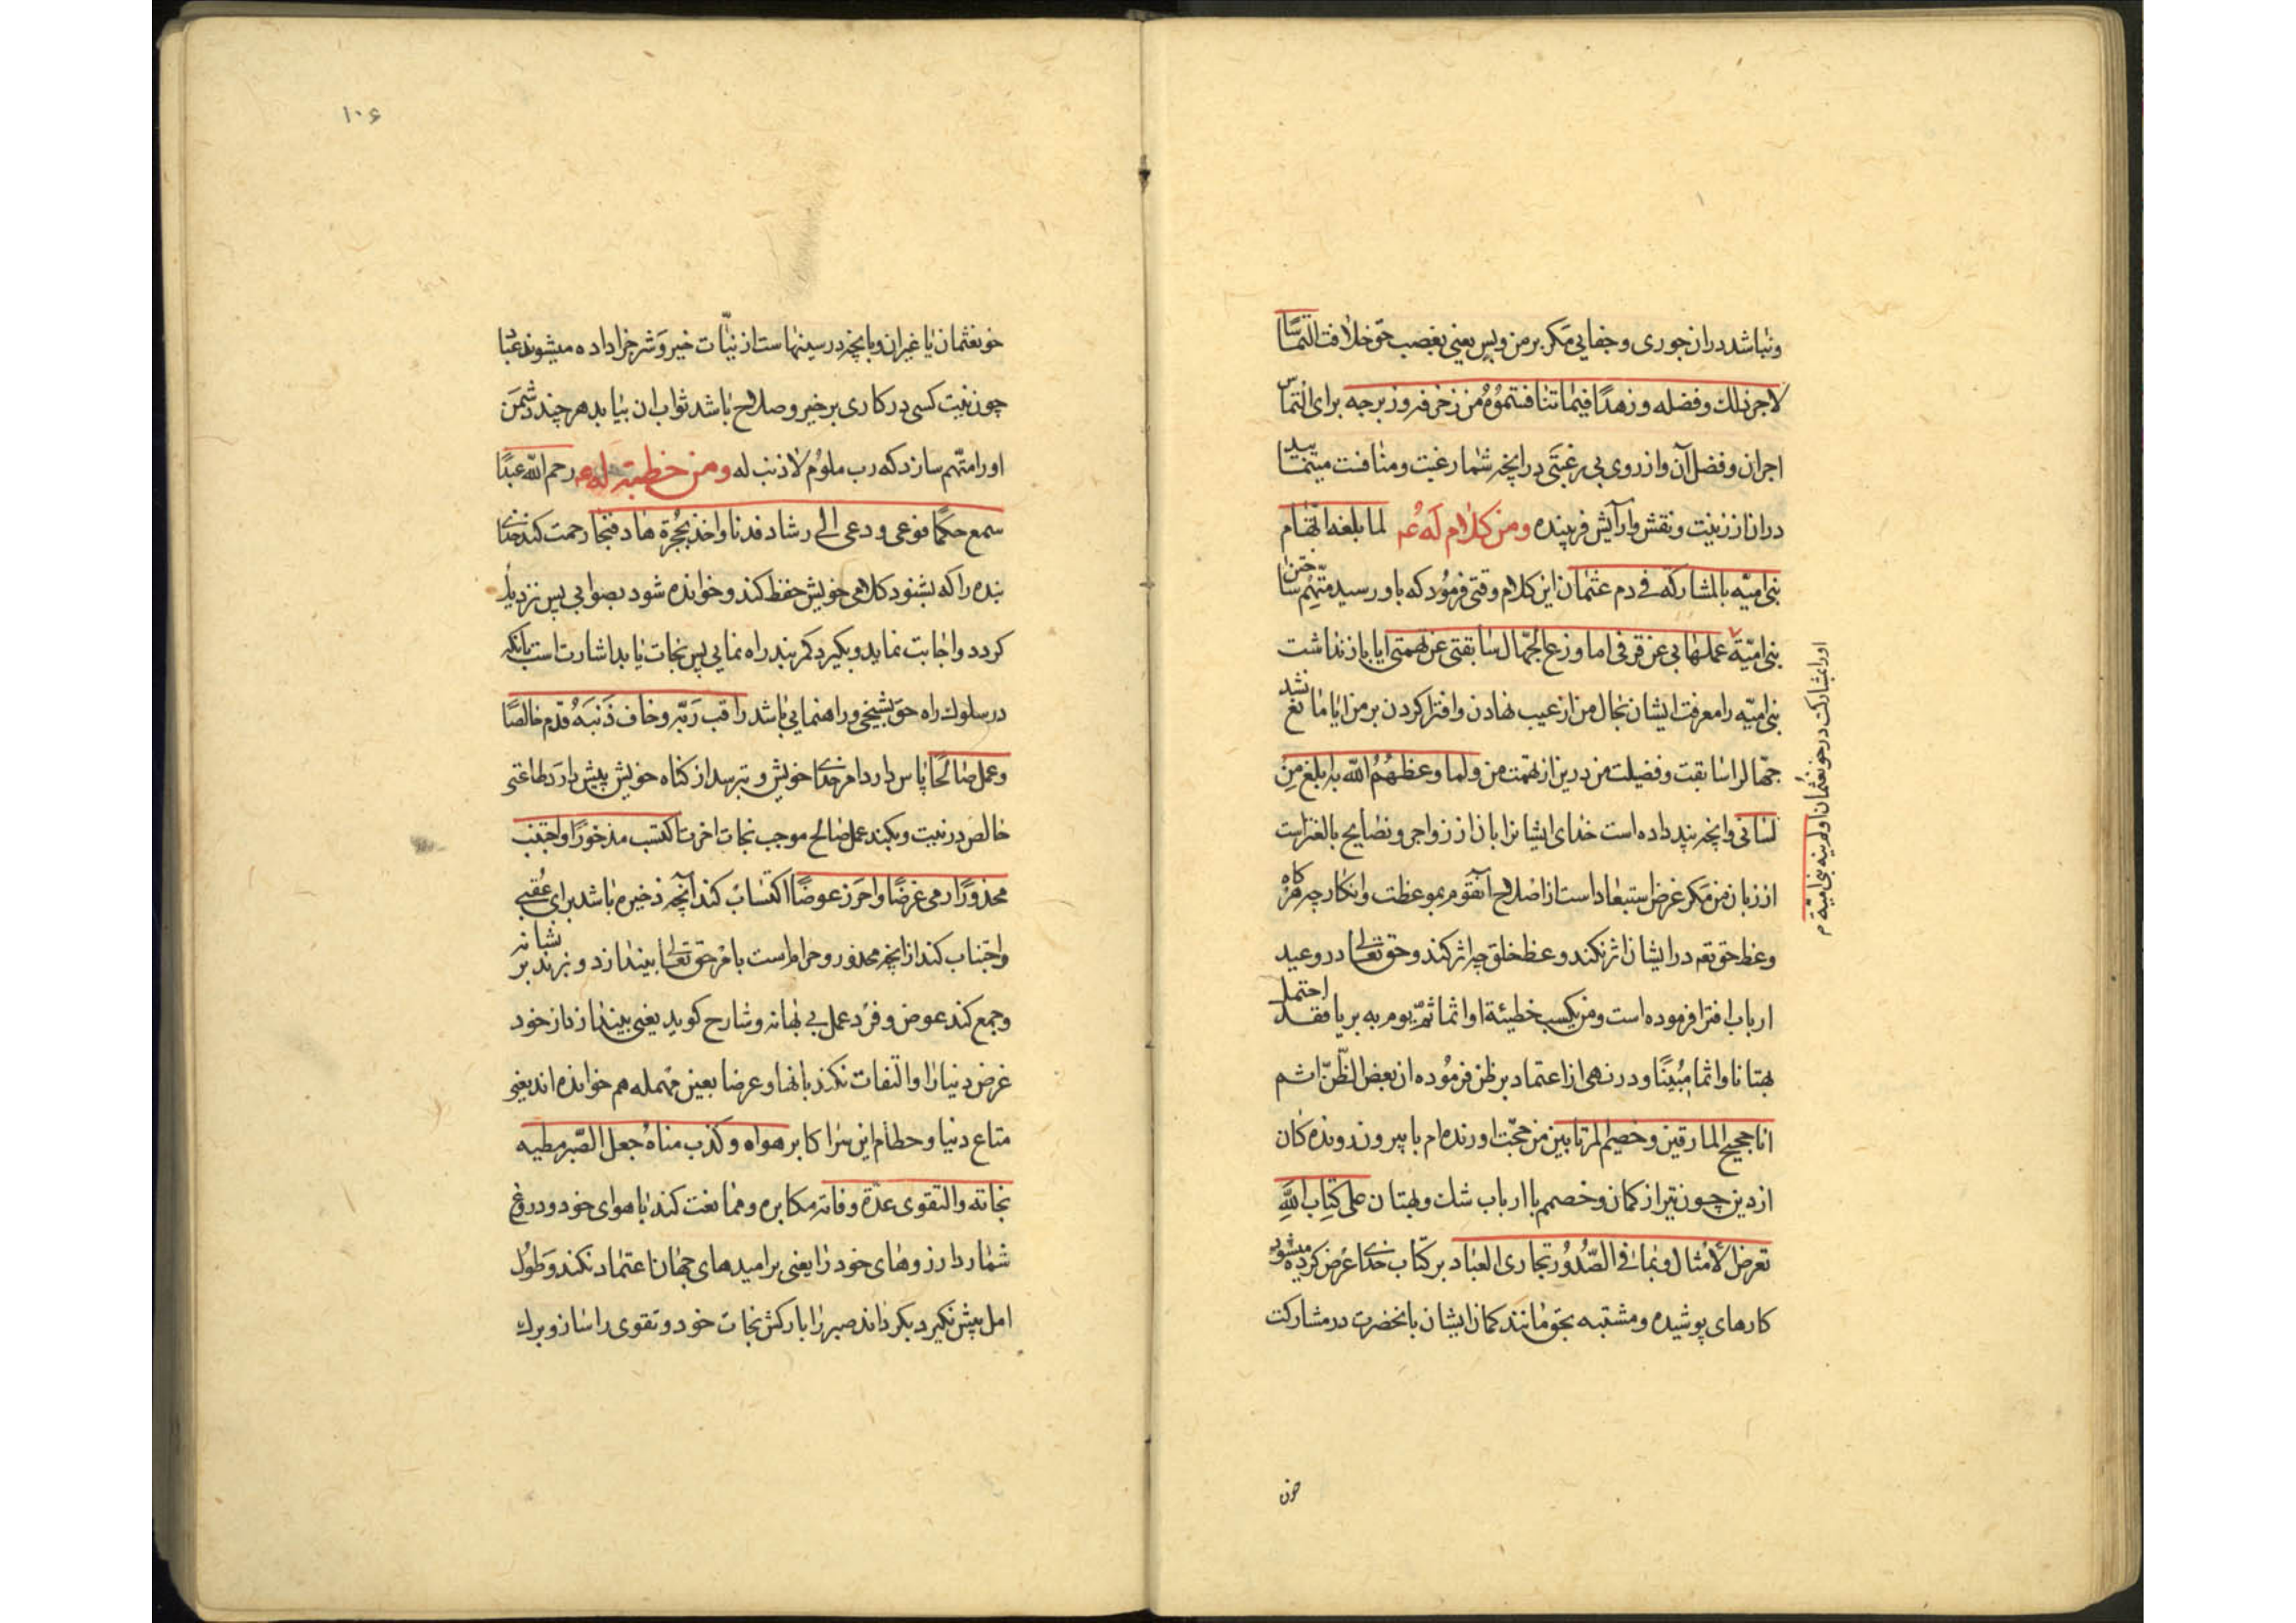 ونباشد دران جوری و جفایی مکر بر من وبس یعنی بغصب حق خلافت التماسا
لاجر ذلك وفضله و زهدا فیما تنافستموه من زخرفه و زبرجه برای التماس
اجران و فضل آن و از روی بی رغبتی درانچه شما رغبت ومنافست مینمایید
دران از زینت ونقش وارآیش فریبنده ومن کلام له ع لما بلغه اتهام
بنی امیه بالمشارکه فی دم عثمان این کلام وقتی فرمود که باو رسید متهم ساختن
بنی امیة عملها بی عن قرفی اما وزع الجهال سابقتی عن تهمتی ایا باز نداشت
بنی امیه را معرفت ایشان بحال من از عیب نهادن وافترا کردن بر من ایا مانع نشد
جهال را سابقت وفضیلت من درین از تهمت من ولما وعظهم الله به ابلغ من
لسانی وانچه پند داده است خدای ایشانرا بان از زواجر و نصایح بالغتر است
از زبان من مکر غرض استبعاد است از اصلاح آنقوم بموعظت وانکار چه هرکاه
وعظ حق تع در ایشان اثر نکند وعظ خلق چه اثر کند وحق تعالی در وعید
ارباب افترا فرموده است ومن یکسب خطیئة او اثما ثم یرم به بریا فقد احتمل
بهتانا واثما مبینا و در نهی از اعتماد بر ظن فرموده ان بعض الظن اثم
انا حجیج المارقین وخصیم المرتابین من حجت اورنده ام با بیرون رونده کان
از دین چون تیر از کمان وخصمم با ارباب شك وبهتان علی کتاب الله
تعرض الامثال وبما فی الصدور تجازی العباد بر کتاب خدای عرض کرده میشود
کارهای پوشیده ومشتبه بحق مانند کمان ایشان بانحضرت در مشارکت
اورا بمشارکت در خون عثمان اولم ینه بنی امیة م
خون
۱۰۶
خون عثمان یا غیر ان وبانچه در سینهاست از نیات خیر وشر جزا داده میشوند عباد
چون نیت کسی در کاری بر خیر وصلاح باشد ثواب ان بیابد هر چند دشمن
اورا متهم سازد که رب ملوم لا ذنب له ومن خطبة له ع رحم الله عبدا
سمع حکما فوعی و دعی الی رشاد فدنا واخذ بحجزة هاد فنجا رحمت کند خدای
بنده را که بشنود کلامی خویش حفظ کند و خوانده شود بصوابی پس نزدیك
کردد واجابت نماید وبکیرد کمر بند راه نمایی پس نجات یابد اشارت است بانکه
در سلوك راه حق بشیخی وراهنمایی باشد راقب ربه وخاف ذنبه قدم خالصا
وعمل صالحا پاس دارد امر خدای خویش و بترسد از کناه خویش پیش دارد طاعتی
خالص در نیت وبکند عمل صالح موجب نجات اخرت اکتسب مذخورا واجتنب
محذورا رمی غرضا واحرز عوضا اکتساب کند آنچه ذخیره باشد برای عقبی
واجتناب کند از انچه محذور وحرام است بامر حق تعالی بیندازد و بزند بر نشانه
وجمع کند عوض و فرد عمل بی بهانه وشارح کوید یعنی بیندازد از خود
غرض دنیا را والتفات نکند بانها وعرضا بعین مهمله هم خوانده اند یعنی
متاع دنیا وحطام این سرا کابر هواه وکذب مناه جعل الصبر مطیه
نجاته والتقوی عدة وفاته مکابره و ممانعت کند با هوای خود ودروغ
شمارد ارزوهای خود را یعنی بر امیدهای جهان اعتماد نکند وطول
امل پیش نکیرد بکرداند صبر را بارکش نجات خود وتقوی را ساز وبرك